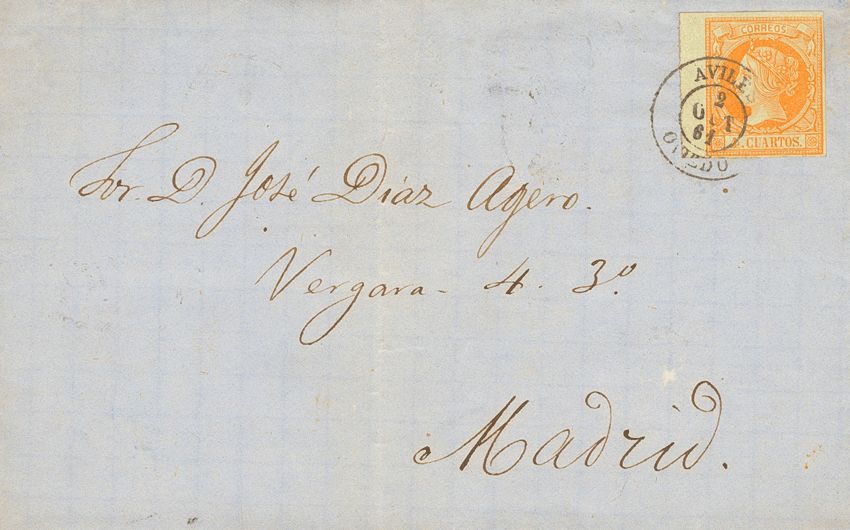 CORREOS
CUARTOS.
AVILES
2
OCT
61
OVIEDO
Sor. D. José Díaz Agero.
Vergara - 4. 3.º
Madrid.